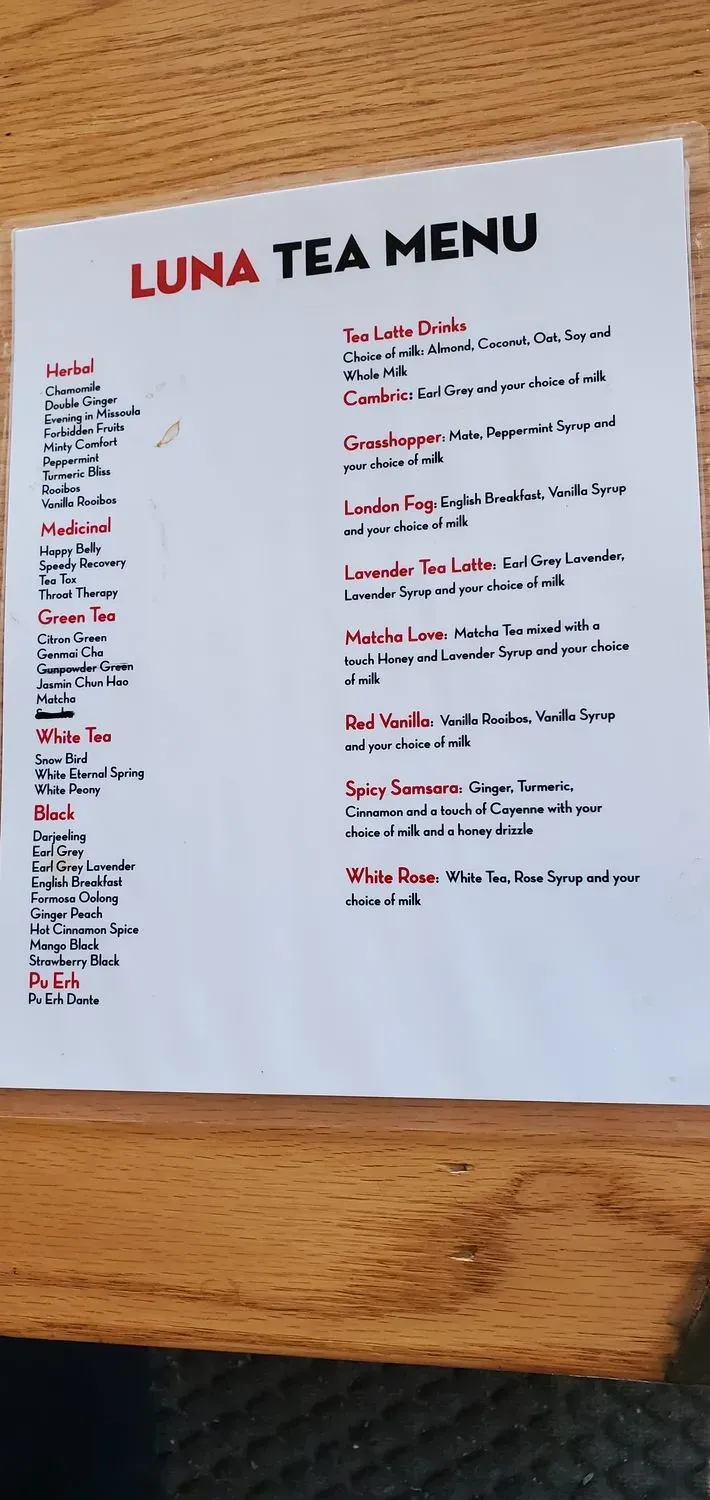 LUNA TEA MENU
Herbal
Chamomile
Double Ginger
Evening in Missoula
Forbidden Fruits
Minty Comfort
Peppermint
Turmeric Bliss
Rooibos
Vanilla Rooibos
Medicinal
Happy Belly
Speedy Recovery
Tea Tox
Throat Therapy
Green Tea
Citron Green
Genmai Cha
Gunpowder Green
Jasmin Chun Hao
Matcha
White Tea
Snow Bird
White Eternal Spring
White Peony
Black
Darjeeling
Earl Grey
Earl Grey Lavender
English Breakfast
Formosa Oolong
Ginger Peach
Hot Cinnamon Spice
Mango Black
Strawberry Black
Pu Erh
Pu Erh Dante
Tea Latte Drinks
Choice of milk: Almond, Coconut, Oat, Soy and
Whole Milk
Cambric: Earl Grey and your choice of milk
Grasshopper: Mate, Peppermint Syrup and
your choice of milk
London Fog: English Breakfast, Vanilla Syrup
and your choice of milk
Lavender Tea Latte: Earl Grey Lavender,
Lavender Syrup and your choice of milk
Matcha Love: Matcha Tea mixed with a
touch Honey and Lavender Syrup and your choice
of milk
Red Vanilla: Vanilla Rooibos, Vanilla Syrup
and your choice of milk
Spicy Samsara: Ginger, Turmeric,
Cinnamon and a touch of Cayenne with your
choice of milk and a honey drizzle
White Rose: White Tea, Rose Syrup and your
choice of milk